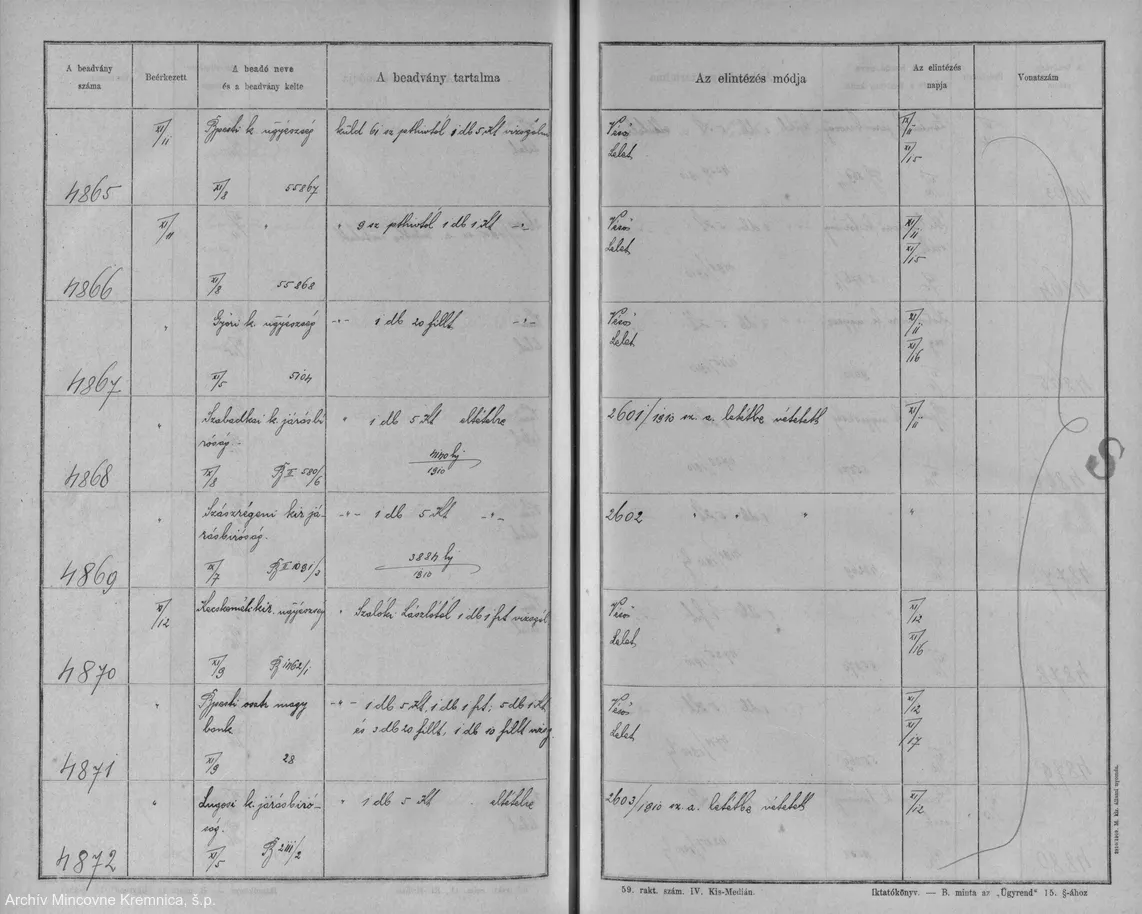 A beadvány száma
Beérkezett
A beadó neve és a beadvány kelte
A beadvány tartalma
Az elintézés módja
Az elintézés napja
Vonatszám
4865
XI/11
Bpesti k. ügyészség
küld 61 sz pthivtól 1 db 5 Kt vizsgálni
XI/8 55867
Véső
Lelet
XI/15
4866
XI/11
" 9 sz pthivtól 1 db 1 Kt -"-
XI/8 55868
Véső
Lelet
XI/11
XI/15
4867
"
Győri k. ügyészség
-"- 1 db 20 fillt -"-
XI/5 5104
Véső
Lelet
XI/11
XI/16
4868
"
Szabadkai k. járásbi-
róság.
" 1 db 5 Kt eltételre
2601/1910 sz. a. letétbe vétetett
XI/11
4869
"
Szászrégeni kir já-
rásbiróság.
-"- 1 db 5 Kt -"-
2602 " " "
"
4870
XI/12
Kecskeméti kir. ügyészség
" Szalóki Lászlótól 1 db 1 frt vizsgál
XI/9
Véső
Lelet
XI/12
XI/16
4871
"
Bpesti osztr magy
bank
-"- 1 db 5 Kt, 1 db 1 frt; 5 db 1 Kt
és 3 db 20 fillt, 1 db 10 fillt vizsg.
XI/9 28
Véső
Lelet
XI/12
XI/17
4872
"
Lugosi k. járásbiró-
ság.
" 1 db 5 Kt eltételre
XI/5
2603/1910 sz. a. letétbe vétetett
XI/12
59. rakt. szám. IV. Kis-Medián.
Iktatókönyv. — B. minta az „Ügyrend" 15. §-ához
Archív Mincovne Kremnica, š.p.